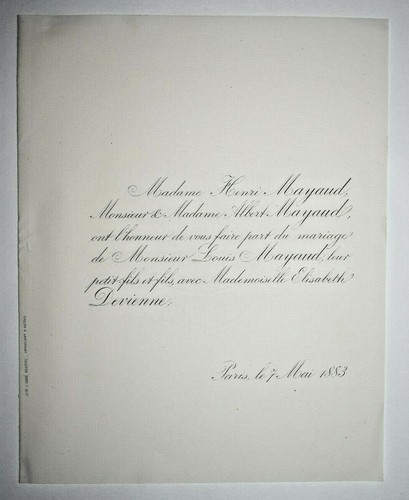 Madame Henri Mayaud,
Monsieur & Madame Albert Mayaud,
ont l'honneur de vous faire part du mariage
de Monsieur Louis Mayaud, leur
petit-fils et fils, avec Mademoiselle Elisabeth
Devienne.
Paris, le 7 Mai 1883